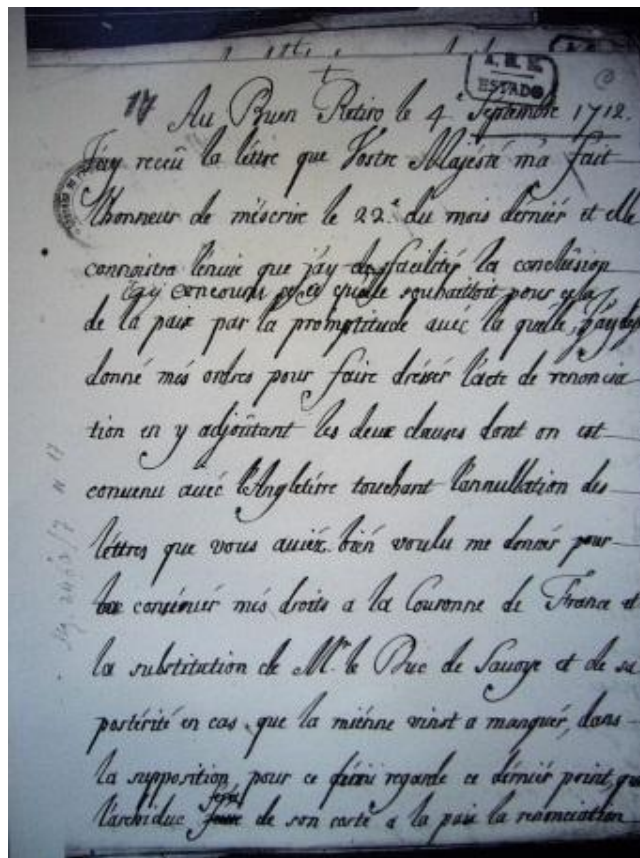 A. H. N.
ESTADO
17 Au Buen Retiro le 4.e Septembre 1712.
J'ay receü la léttre que Vostre Majesté m'a fait
l'honneur de m'éscrire le 22.e du mois derniér et elle
connoistra l'enuie que j'ay de facilitér la conclusion
de la paix par la promptitude auéc la quelle j'ay
donné més ordres pour faire dréssér l'acte de renoncia
tion en y adjoûtant les deux clauses dont on est
conuenu auéc l'Angletérre touchant l'annullation des
léttres que vous auiéz bién voulu me donnér pour
conséruér més droits a la Couronne de France et
la substitution de M.r le Duc de Sauoye et de sa
postérité en cas que la miénne vinst a manquér, dans
la supposition pour ce regarde ce dérniér point, que
l'archiduc de son costé a la paix la renonciation